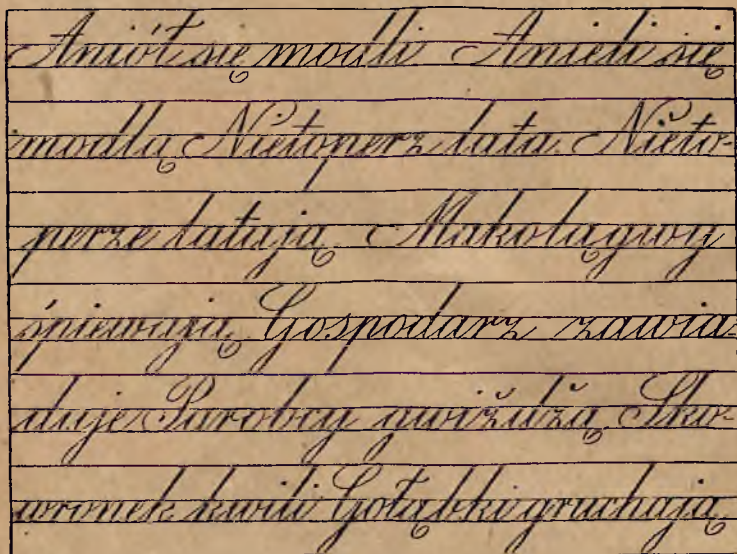 Aniół się modli Anieli się
modlą Nietoperz lata. Nieto-
perze latają. Makolągwy
śpiewają. Gospodarz zawia-
duje Parobcy gwiżdżą. Sko-
wronek kwili Gołąbki gruchają